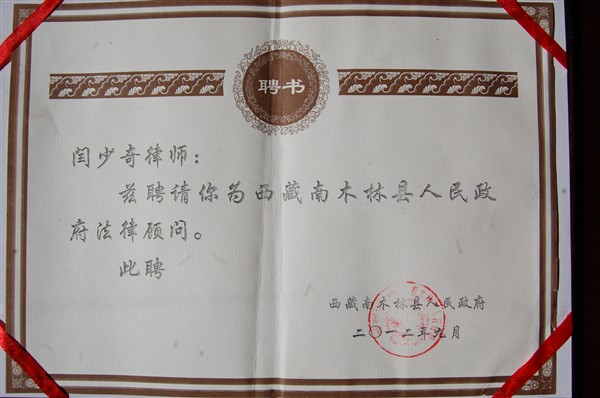 聘书
闫少奇律师：
兹聘请你为西藏南木林县人民政
府法律顾问。
此聘
西藏南木林县人民政府
二〇一二年九月